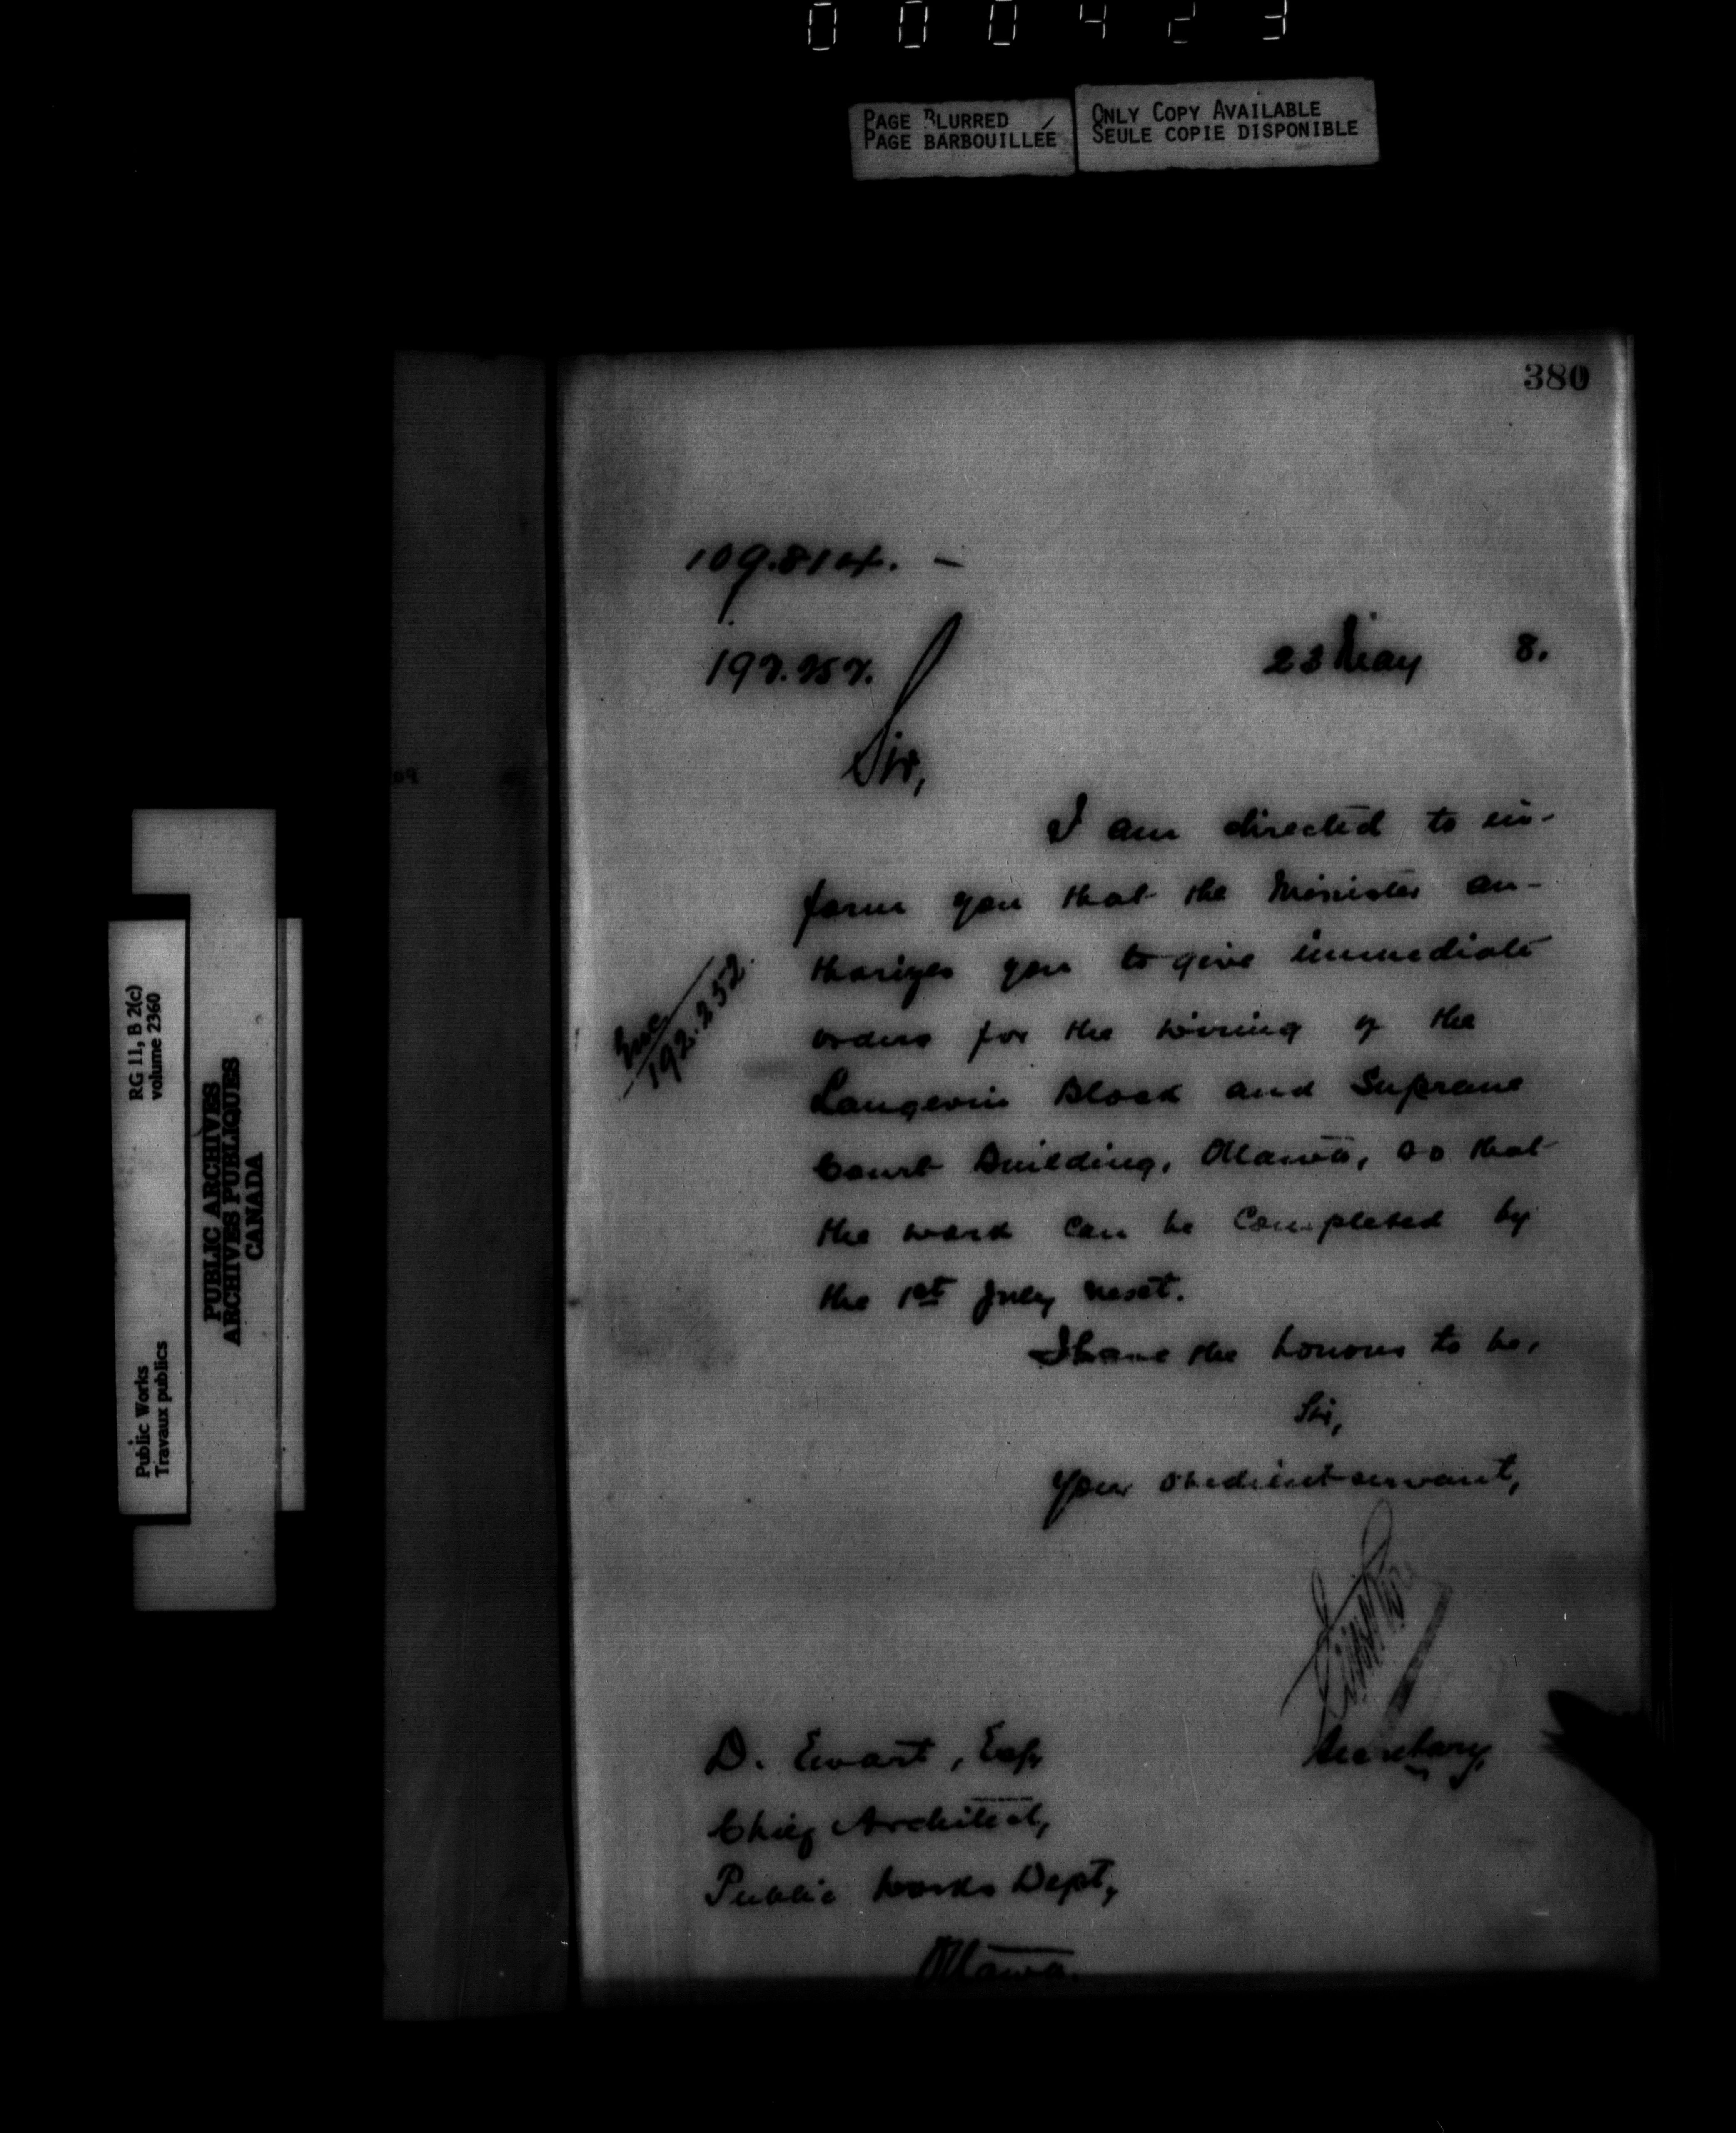 000423
PAGE BLURRED
PAGE BARBOUILLÉE
ONLY COPY AVAILABLE
SEULE COPIE DISPONIBLE
380
109.814. -
23 May 8.
Sir,
I am directed to in-
form you that the Minister au-
thorizes you to give immediate
orders for the wiring of the
Langevin Block and Supreme
Court Building, Ottawa, so that
the work can be completed by
the 1st July next.
I have the honour to be,
Sir,
Your obedient servant,
Secretary,
Enc
192.252.
D. Ewart, Esq
Chief Architect,
Public Works Dept,
Ottawa.
RG 11, B 2(c)
volume 2360
PUBLIC ARCHIVES
ARCHIVES PUBLIQUES
CANADA
Public Works
Travaux publics